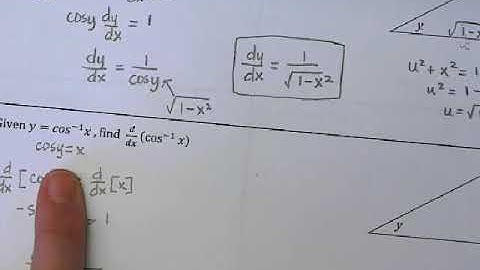 cosy dy/dx = 1
dy/dx = 1/cosy
√1-x²
dy/dx = 1/√1-x²
y
√1-x²
u² + x² = 1
u² = 1-
u = √
Given y = cos⁻¹x, find d/dx (cos⁻¹ x)
cosy = x
d/dx [co = d/dx [x]
-s = 1
y